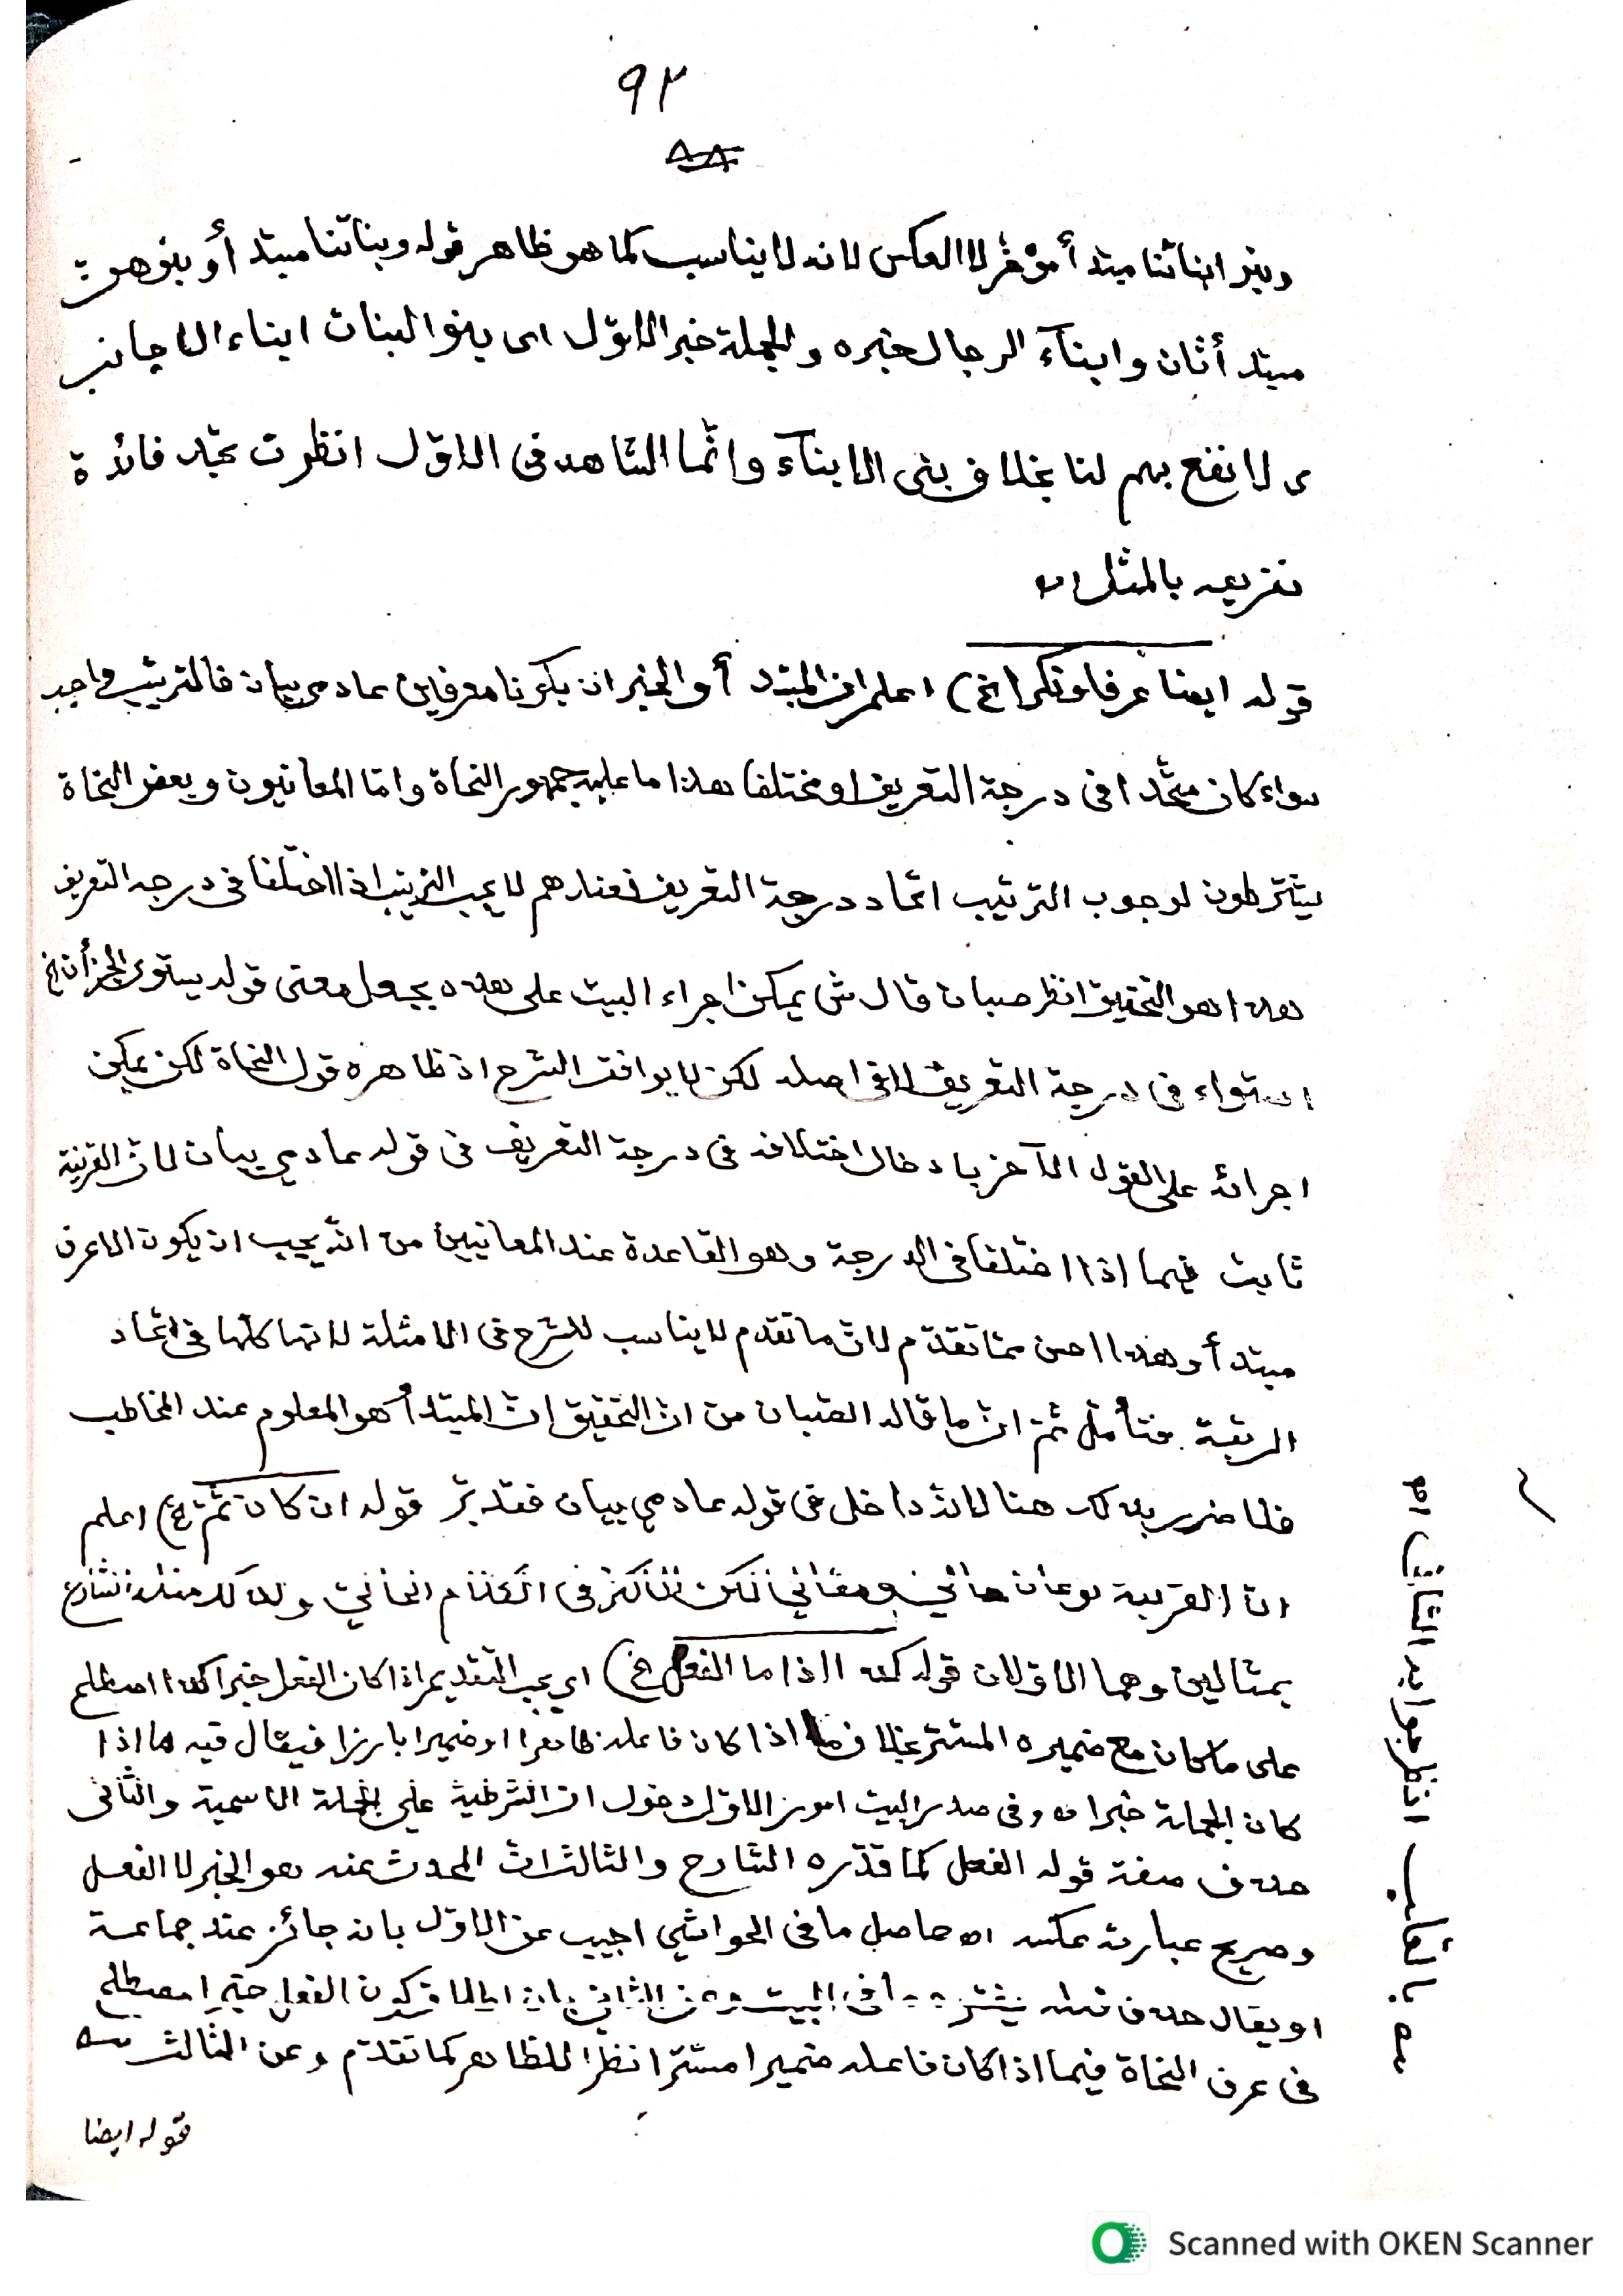 ٩٢
٨٨
وبنو ابنائنا مبتدأ مؤخر لا العكس لانه لا يناسب كما هو ظاهر قوله وبناتنا مبتدأ وبنوهن
مبتدأ ثان وابناء الرجال خبره والجملة خبر الاول اى بنو البنات ابناء الاجانب
لا نفع بهم لنا بخلاف بنى الابناء وانما الشاهد فى الاول انظرت تجد فائدة
تفريعه بالمثل اه
قوله ايضا عرفا ونكرا الخ) اعلم ان المبتدأ والخبر ان يكونا معرفاين عادمى بيان فالترتيب واجب
سواء كان متحدا فى درجة التعريف او مختلفا هذا ما عليه جمهور النحاة واما المعانيون وبعض النحاة
يشترطون لوجوب الترتيب اتحاد درجة التعريف فعندهم لا يجب الترتيب اذا اختلفا فى درجه التعريف
هذا هو التحقيق انظر صبان قال ش يمكن اجراء البيت على هذه بجعل معنى قوله يستوى الجزآن الخ
استواء فى درجة التعريف لا فى اصله لكن لا يوافق الشرح اذ ظاهره قول النحاة لكن يمكن
اجرائه على القول الآخر بادخال اختلافه فى درجة التعريف فى قوله عادمى بيان لان القرينة
ثابت فيما اذا اختلفا فى الدرجة وهو القاعدة عند المعانيين من انه يجب ان يكون الاعرف
مبتدأ وهذا احسن مما تقدم لان ما تقدم لا يناسب للشرح فى الامثلة لانها كلها فى اتحاد
الرتبة فتأمل ثم ان ما قاله الصبان من ان التحقيق ان المبتدأ هو المعلوم عند المخاطب
فلا ضرر بذلك هنا لانه داخل فى قوله عادمى بيان فتدبر قوله ان كان ثم الخ) اعلم
ان القرينة نوعان حالي ومقالي لكن الاكثر فى الكلام الحالي ولذلك مثله الشارح
بمثالين وهما الاولان قوله كذا اذا ما الفعل الخ) اى يجب التقديم اذا كان الفعل خبرا كذا اصطلح
على ما كان مع ضميره المستتر بخلاف ما اذا كان فاعله ظاهرا او ضميرا بارزا فيقال فيه ما اذا
كان الجملة خبرا اه وفى صدر البيت امور الاول دخول ان الشرطية على الجملة الاسمية والثانى
حذف صفة قوله الفعل كما قدره الشارح والثالث ان المحدث عنه هو الخبر لا الفعل
وصريح عبارته عكسه اه حاصل ما فى الحواشى اجيب عن الاول بانه جائز عند جماعة
او يقال حذف فعله فى البيت وعن الثانى بان اطلاق كون الفعل خبرا مصطلح
فى عرف النحاة فيما اذا كان فاعله ضميرا مستترا نظرا للظاهر كما تقدم وعن الثالث
قوله ايضا
بالقلب انظر جوابه الثانى اه
Scanned with OKEN Scanner